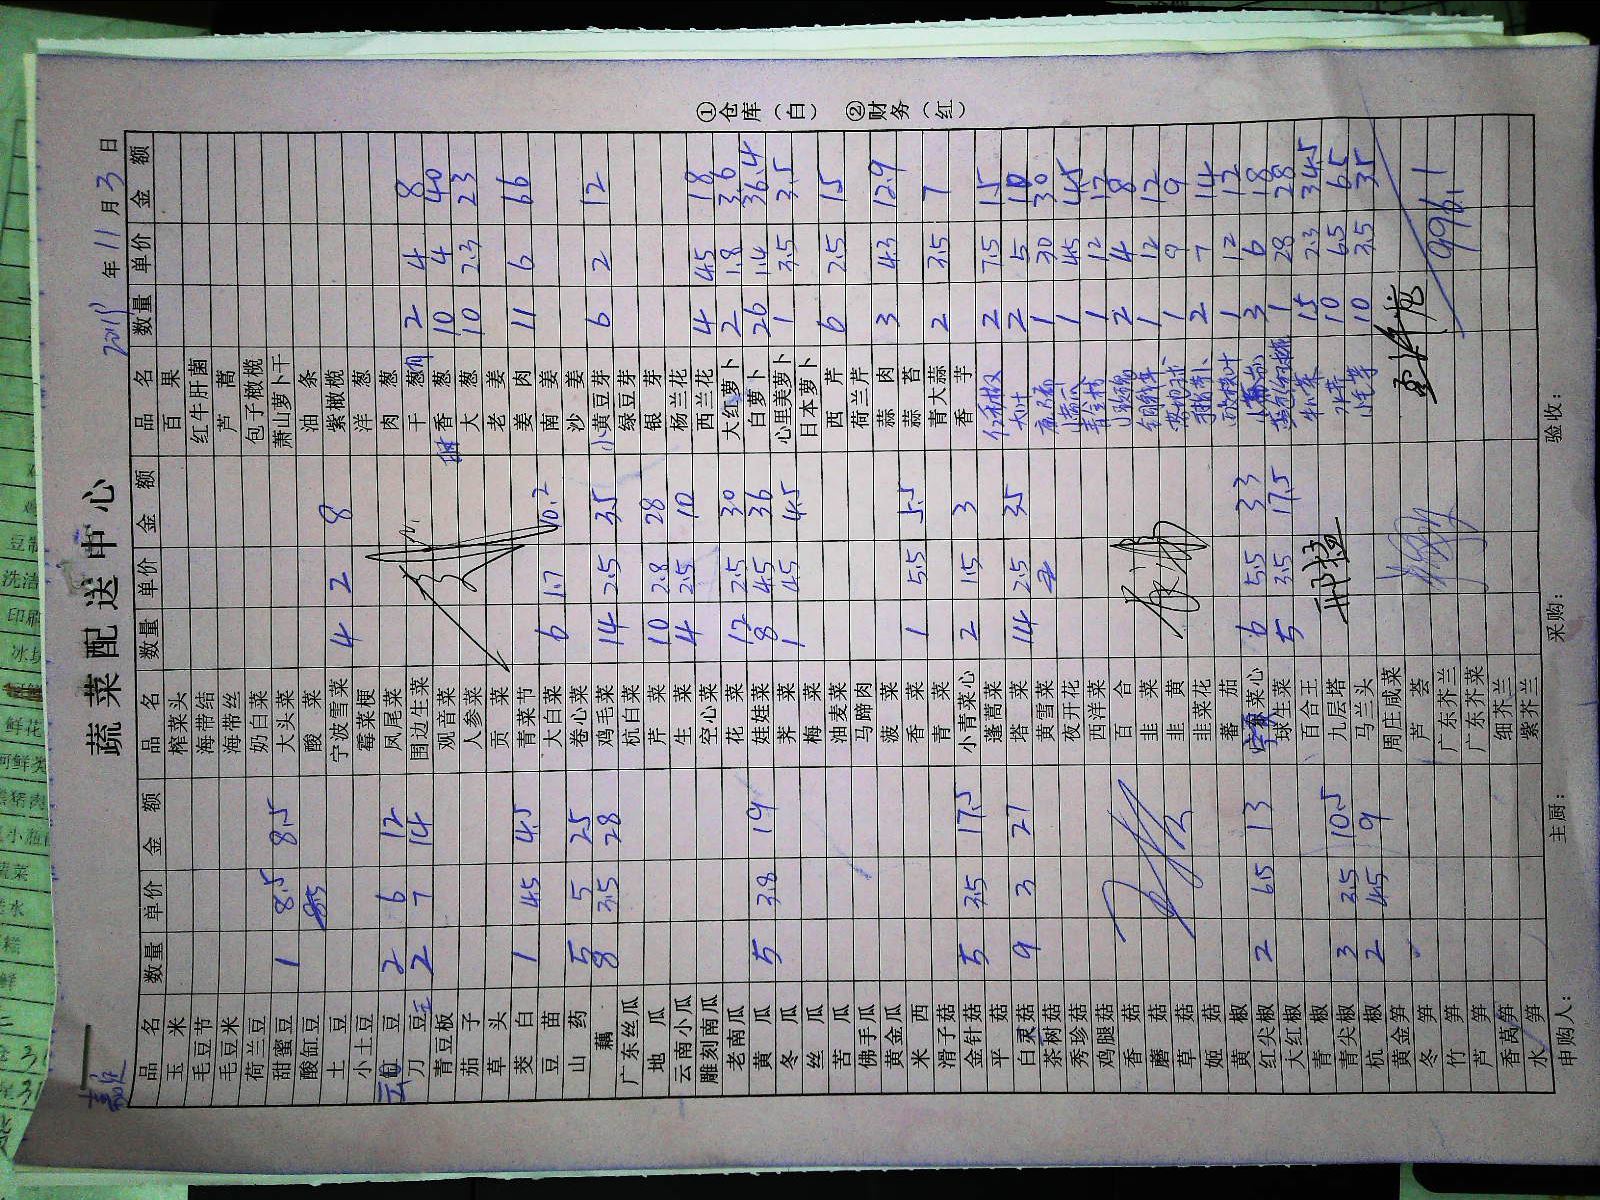 蔬菜配送中心
2019年11月3日
品名 数量 单价 金额 品名 数量 单价 金额 品名 数量 单价 金额
玉米 榨菜头 百果
毛豆节 海带结 红牛肝菌
毛豆米 海带丝 芦蒿
荷兰豆 奶白菜 包子橄榄
甜蜜豆 1 8.5 8.5 大头菜 萧山萝卜干
酸缸豆 酸菜 油条
土豆 宁波雪菜 4 2 8 紫橄榄
小土豆 霉菜梗 洋葱
云豆 2 6 12 凤尾菜 肉葱
刀豆 2 7 14 围边生菜 干葱 2 4 8
青豆板 观音菜 香葱 10 4 40
茄子 人参菜 大葱 10 2.3 23
草头 贡菜 老姜
茭白 1 4.5 4.5 青菜节 姜肉 11 6 66
豆苗 大白菜 6 1.7 10.2 南姜
山药 5 5 25 卷心菜 沙姜
藕 8 3.5 28 鸡毛菜 14 2.5 35 小黄豆芽 6 2 12
广东丝瓜 杭白菜 绿豆芽
地瓜 芹菜 10 2.8 28 银芽
云南小瓜 生菜 4 2.5 10 杨兰花
雕刻南瓜 空心菜 西兰花 4 4.5 18
老南瓜 花菜 12 2.5 30 大红萝卜 2 1.8 3.6
黄瓜 5 3.8 19 娃娃菜 8 4.5 36 白萝卜 26 1.4 36.4
冬瓜 荠菜 1 4.5 4.5 心里美萝卜 1 3.5 3.5
丝瓜 梅菜 日本萝卜
苦瓜 油麦菜 西芹 6 2.5 15
佛手瓜 马蹄肉 荷兰芹
黄金瓜 菠菜 蒜肉 3 4.3 12.9
米西 香菜 1 5.5 5.5 蒜苔
滑子菇 青菜 青大蒜 2 3.5 7
金针菇 5 3.5 17.5 小青菜心 2 1.5 3 香芋
平菇 蓬蒿菜 2 7.5 15
白灵菇 9 3 27 塔菜 14 2.5 35 大叶 2 5 10
茶树菇 黄雪菜 1 30 30
秀珍菇 夜开花 1 45 45
鸡腿菇 西洋菜 1 12 12
香菇 百合 2 4 8
蘑菇 韭菜 1 12 12
草菇 韭黄 1 9 9
姬菇 韭菜花 2 7 14
黄椒 番茄 1 12 12
红尖椒 2 6.5 13 菜心 6 5.5 33 3 6 18
大红椒 球生菜 5 3.5 17.5 1 28 28
青椒 百合王 15 2.3 34.5
青尖椒 3 3.5 10.5 九层塔 10 6.5 65
杭椒 2 4.5 9 马兰头 10 3.5 35
黄金笋 周庄咸菜
冬笋 芦荟
竹笋 广东芥兰 996.1
芦笋 广东芥菜
香莴笋 细芥兰
水笋 紫芥兰
申购人： 主厨： 采购： 验收：
①仓库（白） ②财务（红）